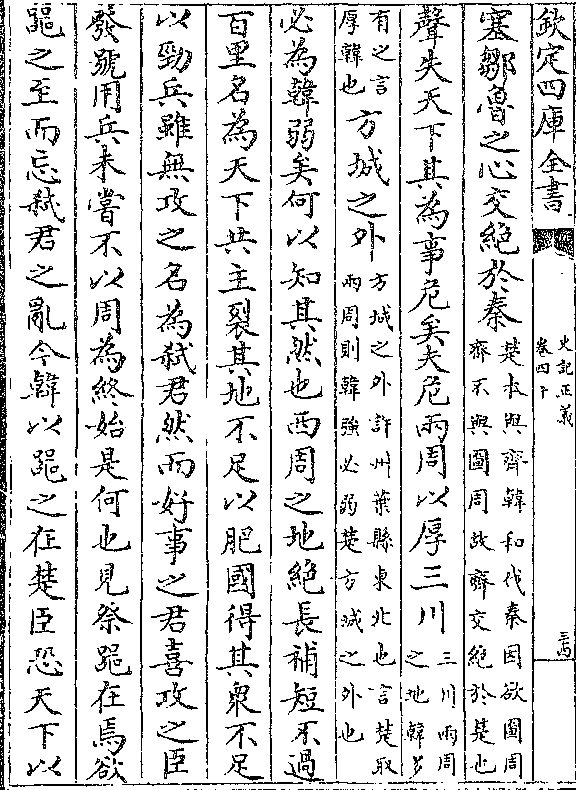 欽定四庫全書
史記正義
卷四十
塞鄒魯之心交絕於秦楚本與齊韓和伐秦因欲圖周齊不與圖周故齊交絕於楚也
聲失天下其為事危矣夫危兩周以厚三川三川兩周之地韓多
有之言厚韓也方城之外方城之外許州葉縣東北也言楚取兩周則韓強必弱楚方城之外也
必為韓弱矣何以知其然也西周之地絕長補短不過
百里名為天下共主裂其地不足以肥國得其衆不足
以勁兵雖無攻之名為弑君然而好事之君喜攻之臣
發號用兵未嘗不以周為終始是何也見祭器在焉欲
器之至而忘弑君之亂今韓以器之在楚臣恐天下以